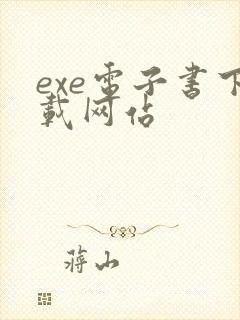 exe電子書下
載网站
蒋山